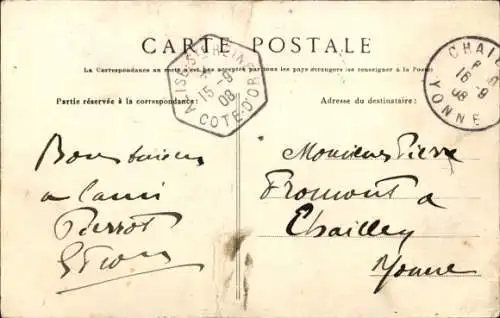 CARTE POSTALE
La Correspondance au recto n'est pas acceptée par tous les pays étrangers (se renseigner à la Poste)
Partie réservée à la correspondance:
Adresse du destinataire:
ALISE-Ste-REINE
15-9
08
COTE-D'OR
CHAI
16-9
08
YONNE
Bons baisers
a l'ami
Pierrot
Monsieur Pierre
Fromont a
Chailley
Yonne